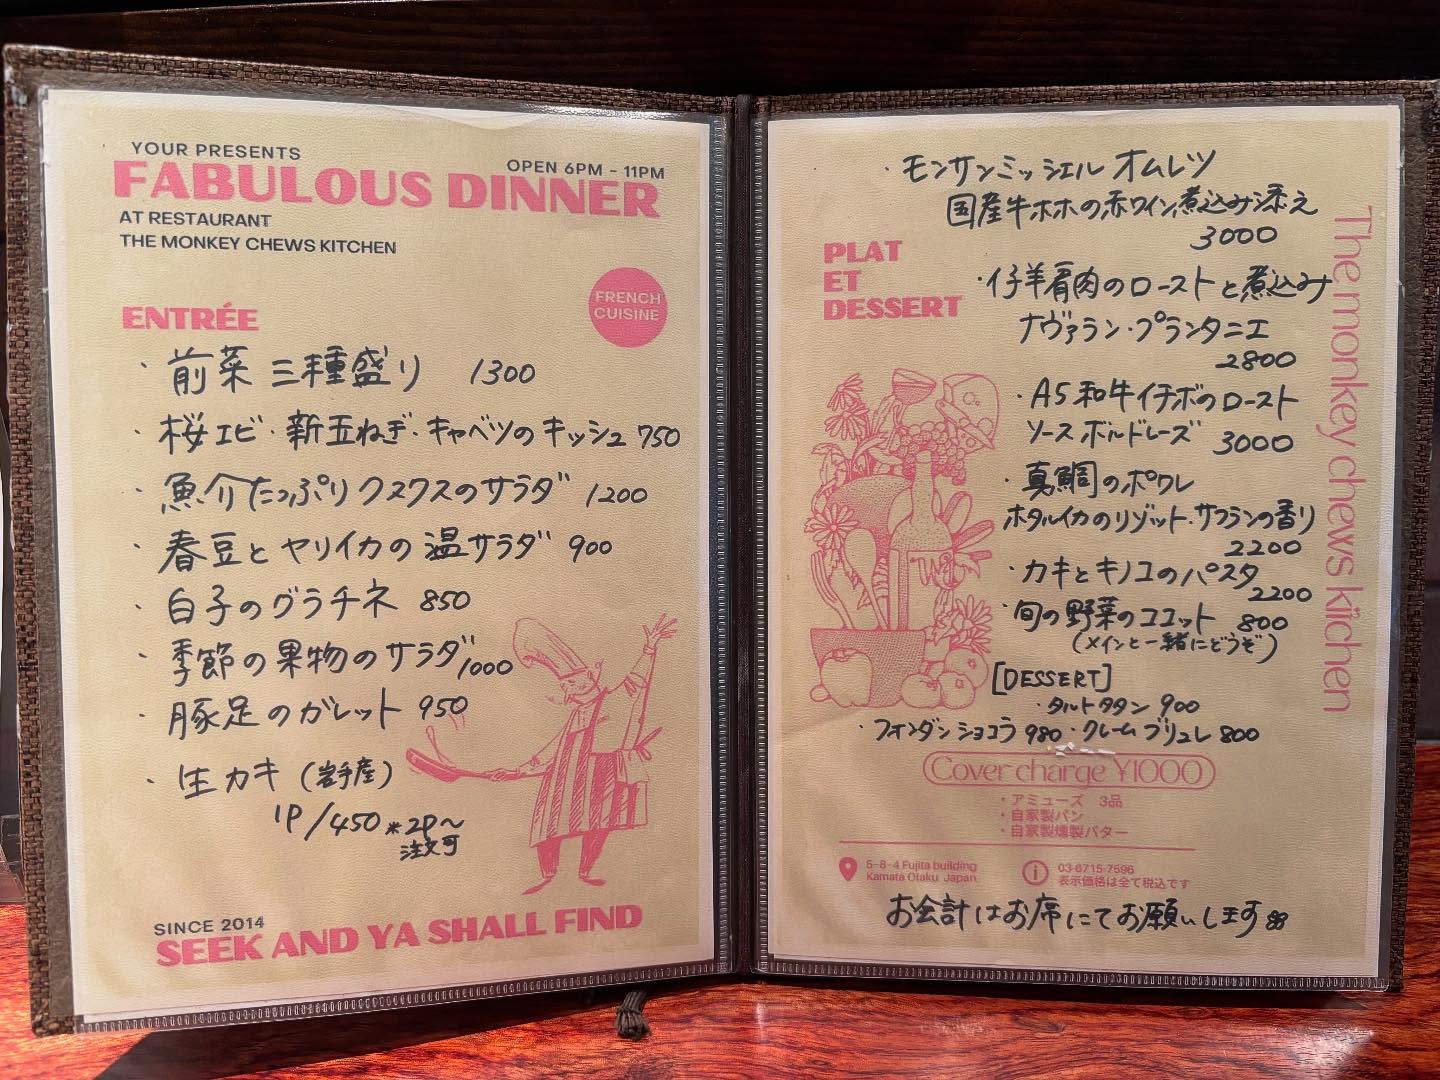 YOUR PRESENTS
OPEN 6PM - 11PM
FABULOUS DINNER
AT RESTAURANT
THE MONKEY CHEWS KITCHEN
FRENCH
CUISINE
ENTRÉE
・前菜 三種盛り 1300
・桜エビ・新玉ねぎ・キャベツのキッシュ 750
・魚介たっぷりクスクスのサラダ 1200
・春豆とヤリイカの温サラダ 900
・白子のグラチネ 850
・季節の果物のサラダ 1000
・豚足のガレット 950
・生カキ (岩手産)
1P/450 *2P〜
注文可
SINCE 2014
SEEK AND YA SHALL FIND
・モンサンミッシェル オムレツ
国産牛ホホの赤ワイン煮込み添え
3000
PLAT
ET
DESSERT
・仔羊肩肉のローストと煮込み
ナヴァラン・プランタニエ
2800
・A5和牛イチボのロースト
ソース ボルドレーズ 3000
・真鯛のポワレ
ホタルイカのリゾット・サフランの香り
2200
・カキとキノコのパスタ
2200
・旬の野菜のココット 800
(メインと一緒にどうぞ)
[DESSERT]
・タルトタタン 900
・フォンダンショコラ 980 ・クレームブリュレ 800
Cover charge ¥1000
・アミューズ 3品
・自家製パン
・自家製燻製バター
5-8-4 Fujita building
Kamata Otaku Japan
03-6715-7596
表示価格は全て税込です
お会計はお席にてお願いします
The monkey chews kitchen